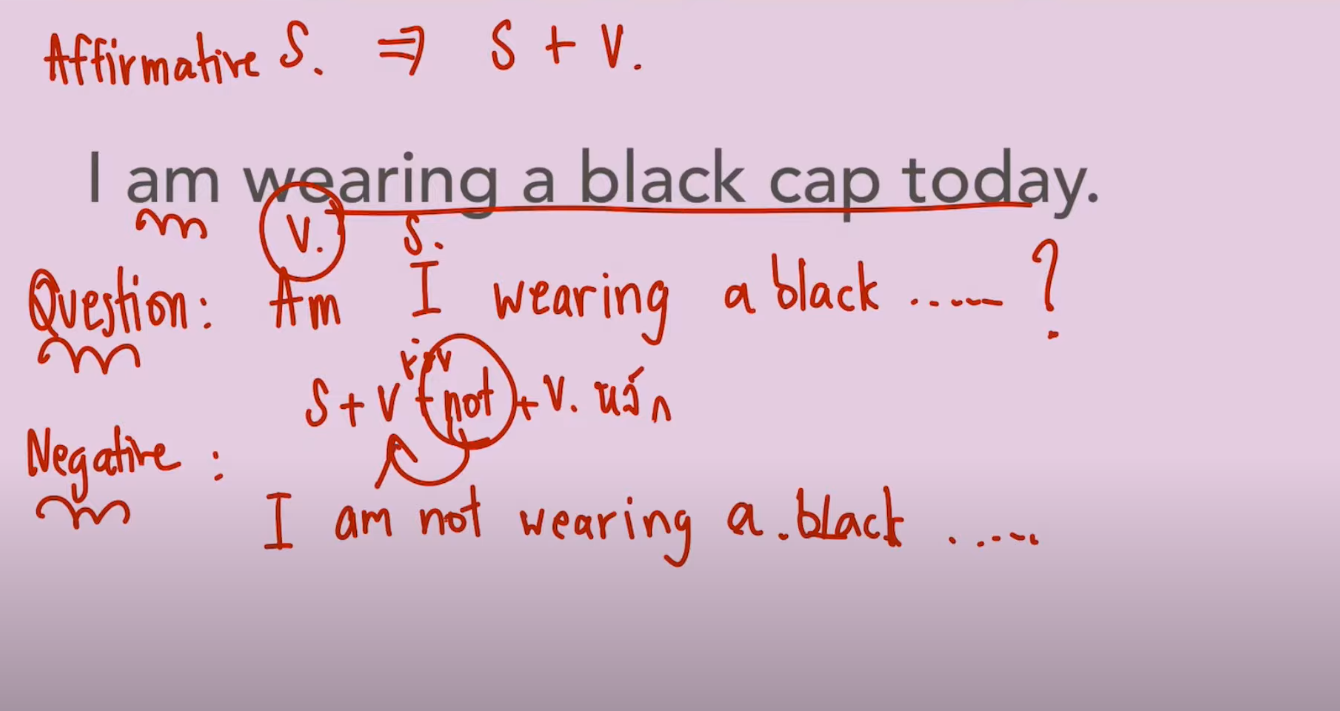 Affirmative S. ⇒ S + V.
I am wearing a black cap today.
V. S.
Question: Am I wearing a black ...... ?
S + V ช่วย + not + V. หลัก
Negative :
I am not wearing a black ......